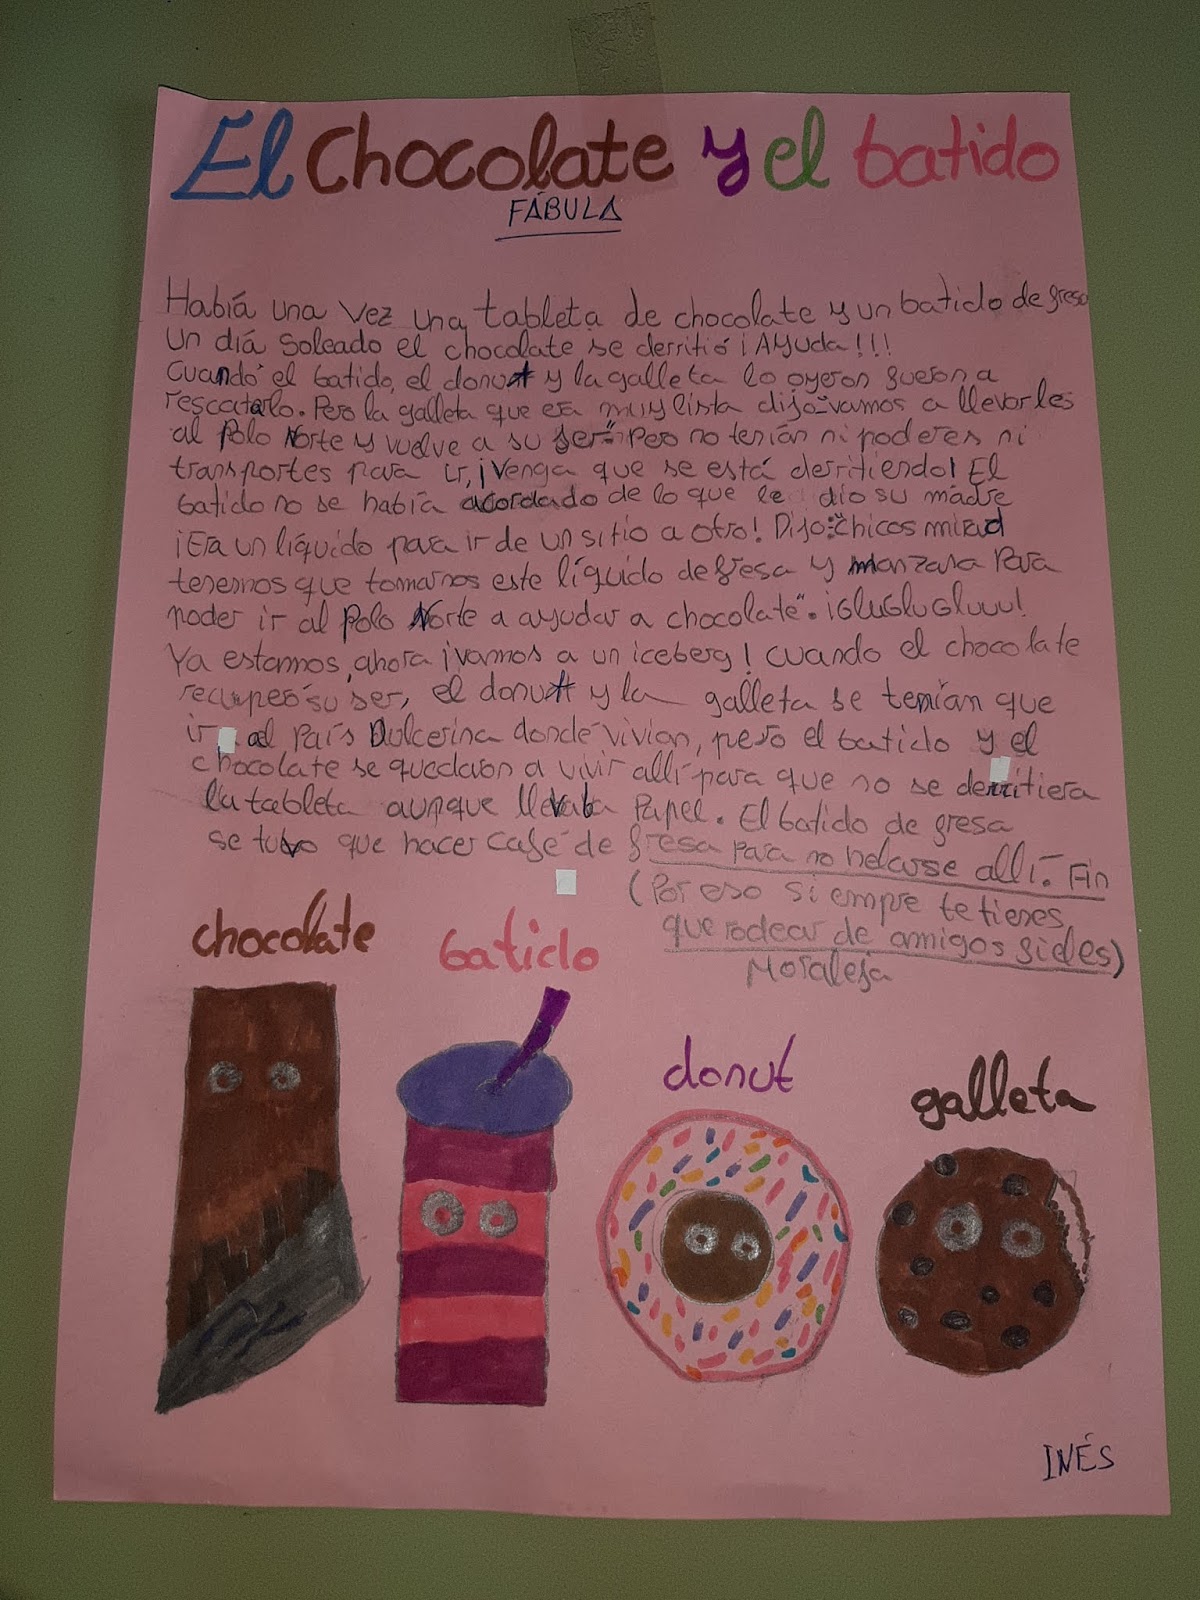 El chocolate y el batido
FÁBULA
Había una vez una tableta de chocolate y un batido de fresa
Un día soleado el chocolate se derritió ¡AYuda!!!
Cuando el batido, el donut y la galleta lo oyeron fueron a
rescatarlo. Pero la galleta que era muy lista dijo-vamos a llevarles
al Polo Norte y vuelve a su ser". Pero no tenían ni poderes ni
transportes para ir, ¡Venga que se está derritiendo! El
batido no se había acordado de lo que le dio su madre
¡Era un líquido para ir de un sitio a otro! Dijo:"chicos mirad
tenemos que tomarnos este líquido de fresa y manzana para
poder ir al Polo Norte a ayudar a chocolate". ¡GluGluGluuu!
Ya estamos, ahora ¡vamos a un iceberg! cuando el chocolate
recuperó su ser, el donut y la galleta se tenían que
ir al País Dulcerina donde vivían, pero el batido y el
chocolate se quedaron a vivir allí para que no se derritiera
la tableta aunque llevaba Papel. El batido de fresa
se tuvo que hacer café de fresa para no helarse allí. Fin
(Por eso siempre te tienes
que rodear de amigos fieles)
Moraleja
chocolate
batido
donut
galleta
INÉS